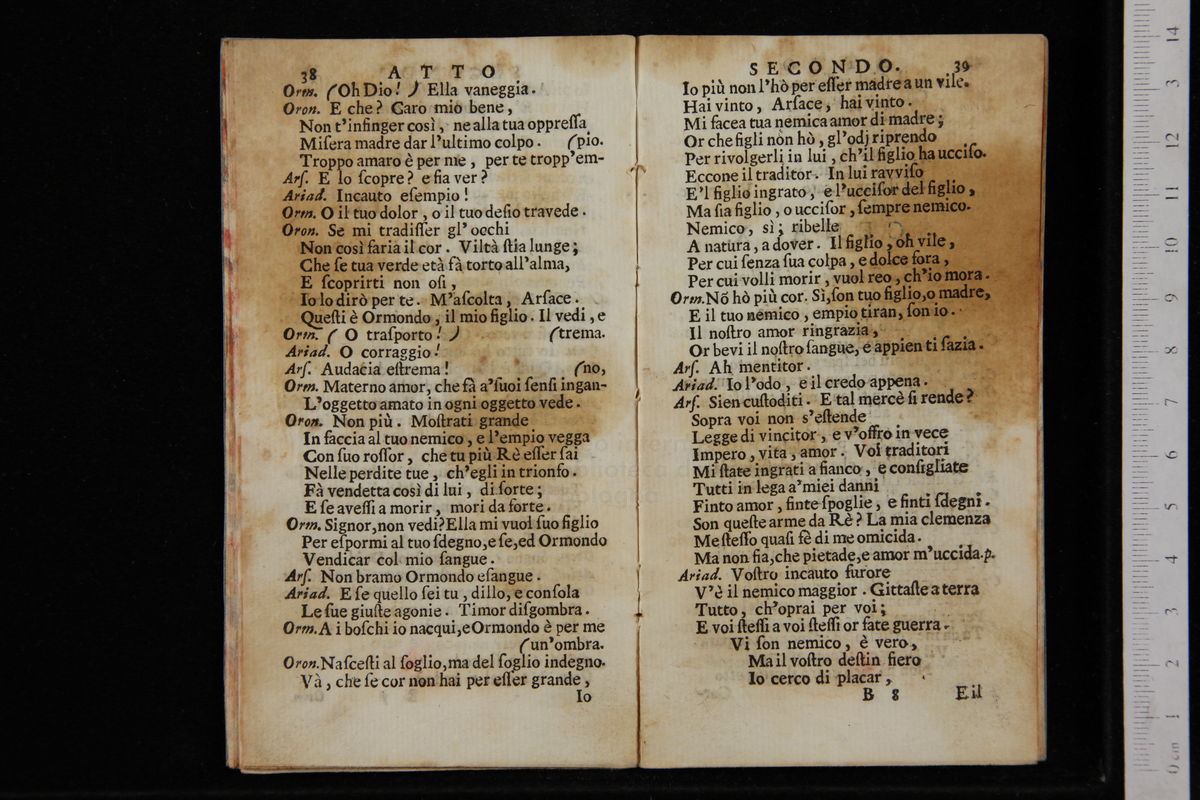 38 ATTO
Orm. (Oh Dio! ) Ella vaneggia.
Oron. E che? Caro mio bene,
Non t'infinger così, ne alla tua oppreſſa
Miſera madre dar l'ultimo colpo. (pio.
Troppo amaro è per me, per te tropp'em-
Arſ. E lo ſcopre? e ſia ver?
Ariad. Incauto eſempio!
Orm. O il tuo dolor, o il tuo deſio travede.
Oron. Se mi tradiſſer gl'occhi
Non così faria il cor. Viltà ſtia lunge;
Che ſe tua verde età fà torto all'alma,
E ſcoprirti non oſi,
Io lo dirò per te. M'aſcolta, Arſace.
Queſti è Ormondo, il mio figlio. Il vedi, e
Orm. ( O traſporto! ) (trema.
Ariad. O corraggio!
Arſ. Audacia eſtrema! (no,
Orm. Materno amor, che fà a'ſuoi ſenſi ingan-
L'oggetto amato in ogni oggetto vede.
Oron. Non più. Moſtrati grande
In faccia al tuo nemico, e l'empio vegga
Con ſuo roſſor, che tu più Rè eſſer ſai
Nelle perdite tue, ch'egli in trionfo.
Fà vendetta così di lui, di ſorte;
E ſe aveſſi a morir, mori da forte.
Orm. Signor, non vedi? Ella mi vuol ſuo figlio
Per eſpormi al tuo ſdegno, e ſe, ed Ormondo
Vendicar col mio ſangue.
Arſ. Non bramo Ormondo eſangue.
Ariad. E ſe quello ſei tu, dillo, e conſola
Le ſue giuſte agonie. Timor diſgombra.
Orm. A i boſchi io nacqui, e Ormondo è per me
(un'ombra.
Oron. Naſceſti al ſoglio, ma del ſoglio indegno.
Và, che ſe cor non hai per eſſer grande,
Io
SECONDO. 39
Io più non l'hò per eſſer madre a un vile.
Hai vinto, Arſace, hai vinto.
Mi facea tua nemica amor di madre;
Or che figli non hò, gl'odj riprendo
Per rivolgerli in lui, ch'il figlio ha ucciſo.
Eccone il traditor. In lui ravviſo
E'l figlio ingrato, e l'ucciſor del figlio,
Ma ſia figlio, o ucciſor, ſempre nemico.
Nemico, sì; ribelle
A natura, a dover. Il figlio, oh vile,
Per cui ſenza ſua colpa, e dolce ſora,
Per cui volli morir, vuol reo, ch'io mora.
Orm. Nõ hò più cor. Sì, ſon tuo figlio, o madre,
E il tuo nemico, empio tiran, ſon io.
Il noſtro amor ringrazia,
Or bevi il noſtro ſangue, e appien ti ſazia.
Arſ. Ah mentitor.
Ariad. Io l'odo, e il credo appena.
Arſ. Sien cuſtoditi. E tal mercè ſi rende?
Sopra voi non s'eſtende
Legge di vincitor, e v'offro in vece
Impero, vita, amor. Voi traditori
Mi ſtate ingrati a fianco, e conſigliate
Tutti in lega a'miei danni
Finto amor, finte ſpoglie, e finti ſdegni.
Son queſte arme da Rè? La mia clemenza
Me ſteſſo quaſi fè di me omicida.
Ma non fia, che pietade, e amor m'uccida. p.
Ariad. Voſtro incauto furore
V'è il nemico maggior. Gittaſte a terra
Tutto, ch'oprai per voi;
E voi ſteſſi a voi ſteſſi or fate guerra.
Vi ſon nemico, è vero,
Ma il voſtro deſtin fiero
Io cerco di placar,
B 8 E il